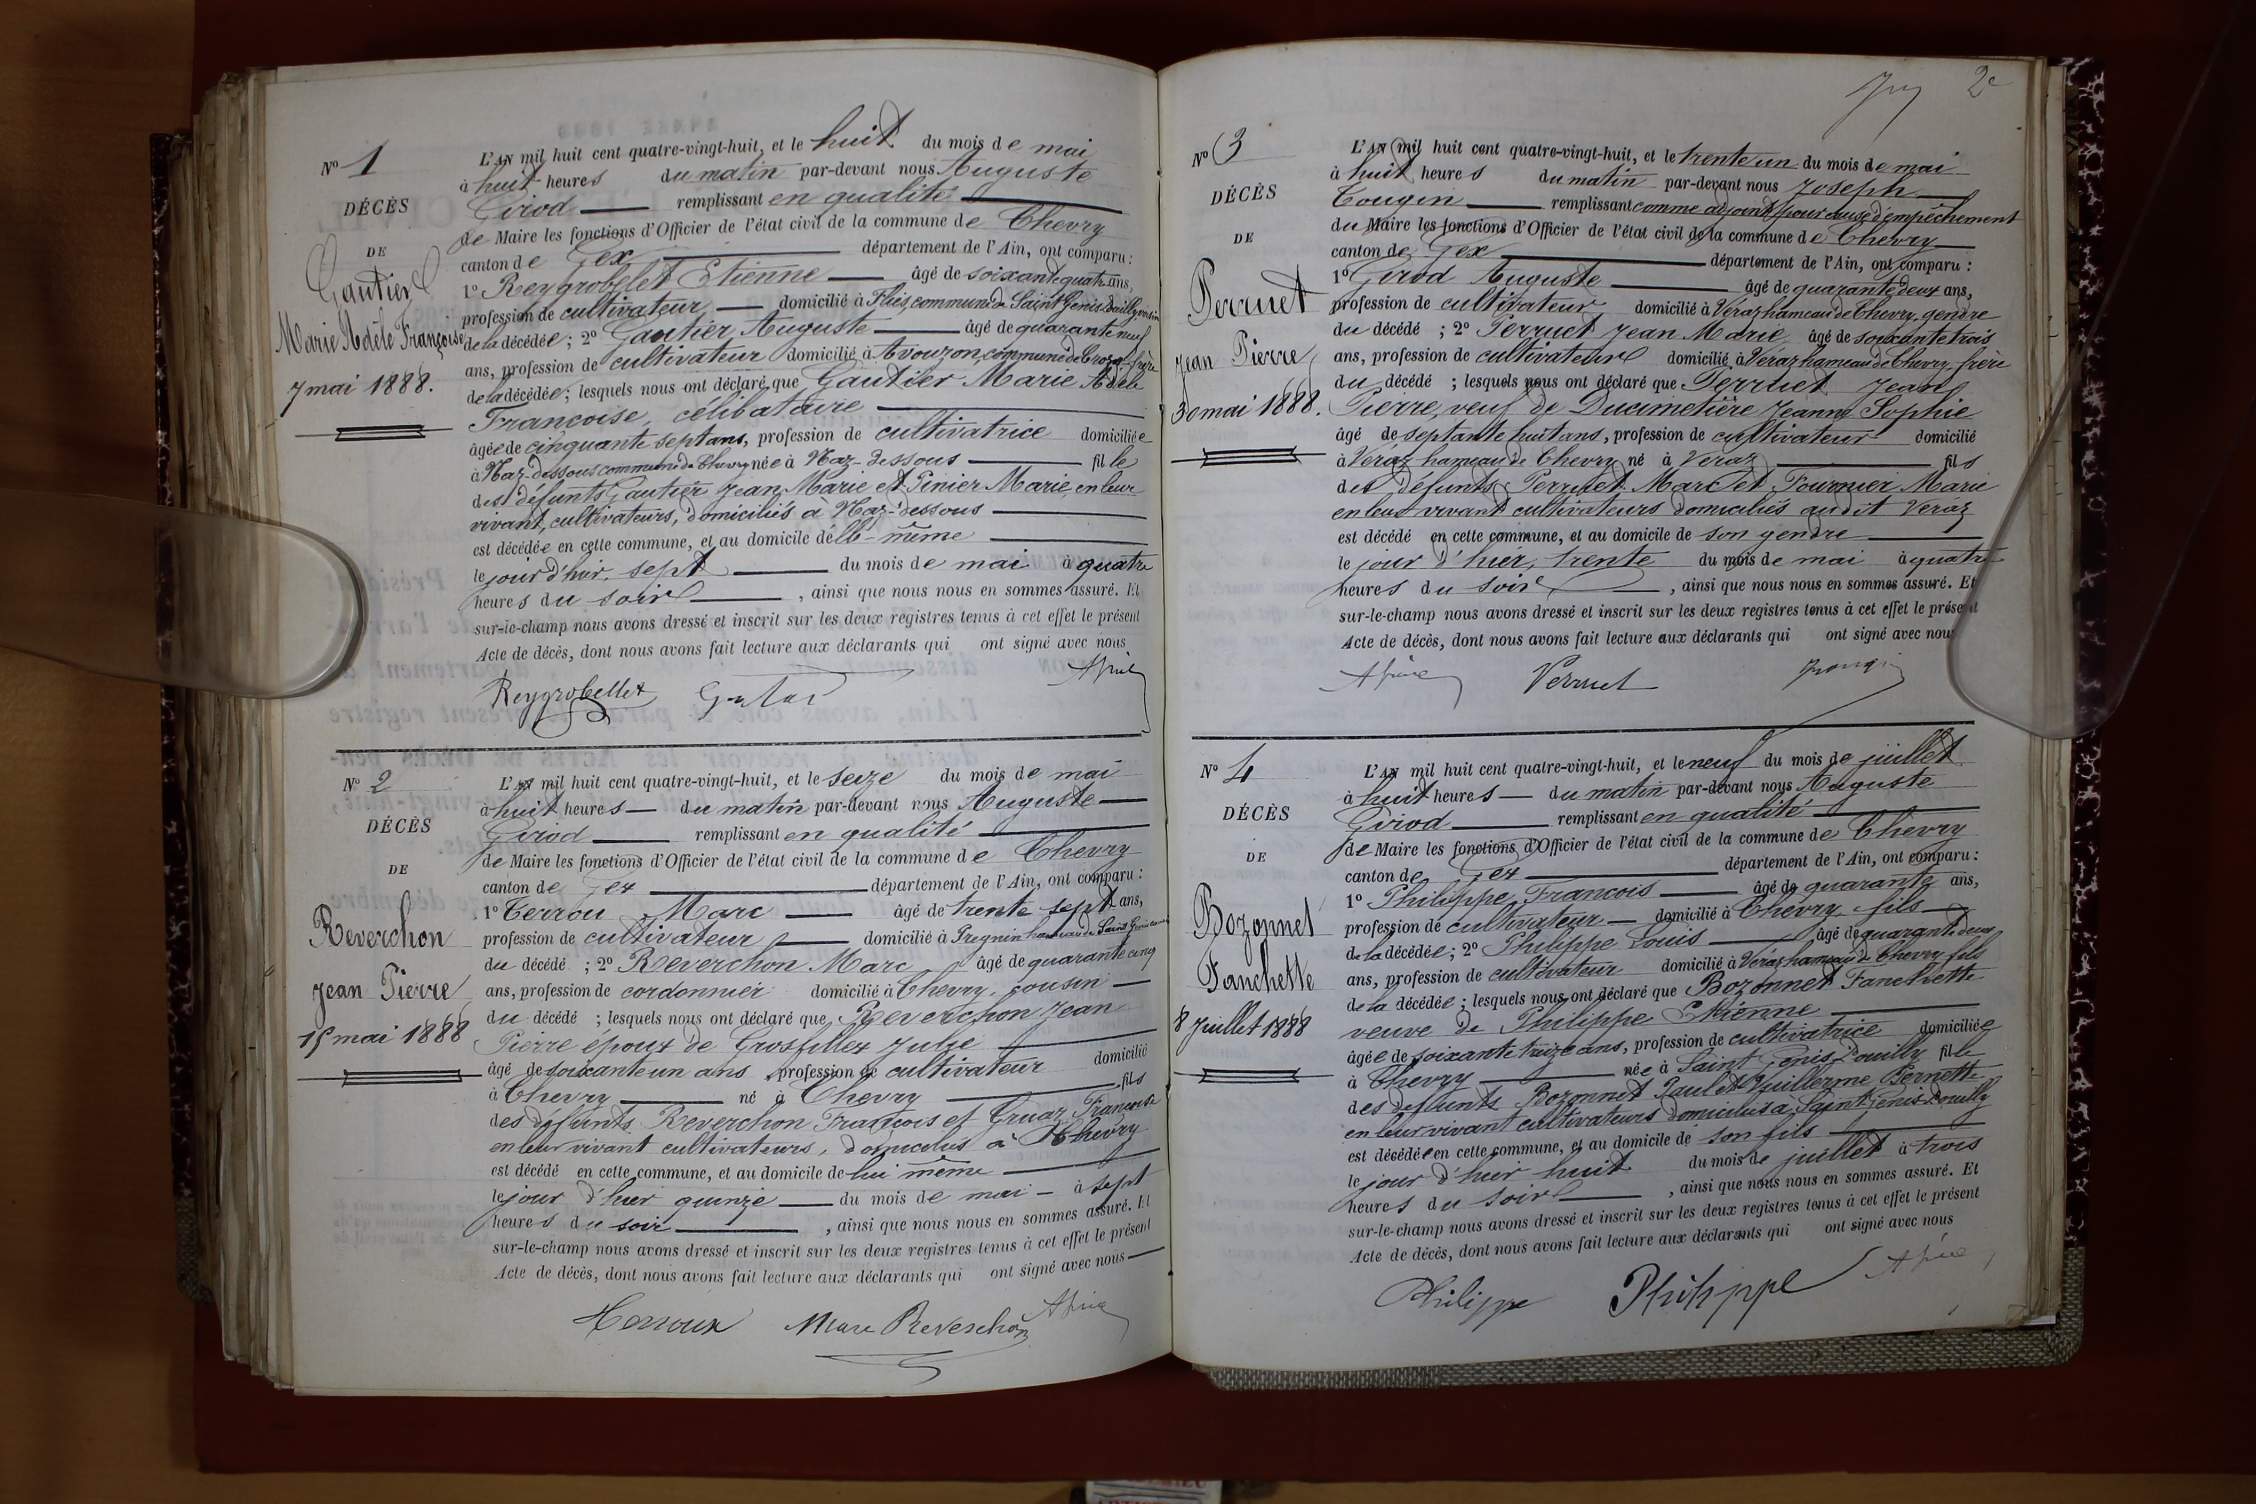 N° 1
DÉCÈS
DE
Gautier
Marie Adèle Françoise
7 mai 1888.
L'AN mil huit cent quatre-vingt-huit, et le huit du mois de mai
à huit heures du matin par-devant nous Auguste
Girod remplissant en qualité
de Maire les fonctions d'Officier de l'état civil de la commune de Chevry
canton de Gex département de l'Ain, ont comparu :
1° Reygrobellet Etienne âgé de soixante quatre ans,
profession de cultivateur domicilié à Flies, commune de Saint Genis-Pouilly, voisin
de la décédée ; 2° Gautier Auguste âgé de quarante neuf
ans, profession de cultivateur domicilié à Avouzon, commune de Crozet, frère
de la décédée ; lesquels nous ont déclaré que Gautier Marie Adèle
Françoise, célibataire
âgée de cinquante sept ans, profession de cultivatrice domiciliée
à Naz-dessous commune de Chevry née à Naz-dessous fille
des défunts Gautier Jean Marie et Pinier Marie, en leur
vivant, cultivateurs, domiciliés à Naz-dessous
est décédée en cette commune, et au domicile d'elle-même
le jour d'hier, sept du mois de mai à quatre
heures du soir, ainsi que nous nous en sommes assuré. Et
sur-le-champ nous avons dressé et inscrit sur les deux registres tenus à cet effet le présent
Acte de décès, dont nous avons fait lecture aux déclarants qui ont signé avec nous
Reygrobellet
N° 2
DÉCÈS
DE
Reverchon
Jean Pierre
15 mai 1888
L'AN mil huit cent quatre-vingt-huit, et le seize du mois de mai
à huit heures du matin par-devant nous Auguste
Girod remplissant en qualité
de Maire les fonctions d'Officier de l'état civil de la commune de Chevry
canton de Gex département de l'Ain, ont comparu :
1° Terrou Marc âgé de trente sept ans,
profession de cultivateur domicilié à Pregnin hameau de Saint Genis
du décédé ; 2° Reverchon Marc âgé de quarante cinq
ans, profession de cordonnier domicilié à Chevry, cousin
du décédé ; lesquels nous ont déclaré que Reverchon Jean
Pierre époux de Grosfillex Julie
âgé de soixante un ans, profession de cultivateur domicilié
à Chevry né à Chevry fils
des défunts Reverchon François et Gruaz Françoise
en leur vivant cultivateurs, domiciliés à Chevry
est décédé en cette commune, et au domicile de lui même
le jour d'hier quinze du mois de mai à sept
heures du soir, ainsi que nous nous en sommes assuré. Et
sur-le-champ nous avons dressé et inscrit sur les deux registres tenus à cet effet le présent
Acte de décès, dont nous avons fait lecture aux déclarants qui ont signé avec nous
Marc Reverchon
2e
N° 3
DÉCÈS
DE
Perruet
Jean Pierre
30 mai 1888.
L'AN mil huit cent quatre-vingt-huit, et le trente un du mois de mai
à huit heures du matin par-devant nous Joseph
Tougin remplissant comme adjoint pour cause d'empêchement
du Maire les fonctions d'Officier de l'état civil de la commune de Chevry
canton de Gex département de l'Ain, ont comparu :
1° Girod Auguste âgé de quarante deux ans,
profession de cultivateur domicilié à Véraz hameau de Chevry, gendre
du décédé ; 2° Perruet Jean Marie âgé de soixante trois
ans, profession de cultivateur domicilié à Véraz hameau de Chevry, frère
du décédé ; lesquels nous ont déclaré que Perruet Jean
Pierre, veuf de Ducimetière Jeanne Sophie
âgé de septante huit ans, profession de cultivateur domicilié
à Véraz hameau de Chevry né à Véraz fils
des défunts Perruet Marc et Fournier Marie
en leur vivant cultivateurs domiciliés audit Véraz
est décédé en cette commune, et au domicile de son gendre
le jour d'hier, trente du mois de mai à quatre
heures du soir, ainsi que nous nous en sommes assuré. Et
sur-le-champ nous avons dressé et inscrit sur les deux registres tenus à cet effet le présent
Acte de décès, dont nous avons fait lecture aux déclarants qui ont signé avec nous
Perruet
N° 4
DÉCÈS
DE
Bozonnet
Fanchette
8 Juillet 1888
L'AN mil huit cent quatre-vingt-huit, et le neuf du mois de juillet
à huit heures du matin par-devant nous Auguste
Girod remplissant en qualité
de Maire les fonctions d'Officier de l'état civil de la commune de Chevry
canton de Gex département de l'Ain, ont comparu :
1° Philippe François âgé de quarante ans,
profession de cultivateur domicilié à Chevry, fils
de la décédée ; 2° Philippe Louis âgé de quarante deux
ans, profession de cultivateur domicilié à Véraz hameau de Chevry fils
de la décédée ; lesquels nous ont déclaré que Bozonnet Fanchette
veuve de Philippe Etienne
âgée de soixante treize ans, profession de cultivatrice domiciliée
à Chevry née à Saint Genis-Pouilly fille
des défunts Bozonnet Paul et Vuillerme Pernette
en leur vivant cultivateurs domiciliés à Saint-Genis-Pouilly
est décédée en cette commune, et au domicile de son fils
le jour d'hier huit du mois de juillet à trois
heures du soir, ainsi que nous nous en sommes assuré. Et
sur-le-champ nous avons dressé et inscrit sur les deux registres tenus à cet effet le présent
Acte de décès, dont nous avons fait lecture aux déclarants qui ont signé avec nous
Philippe Philippe